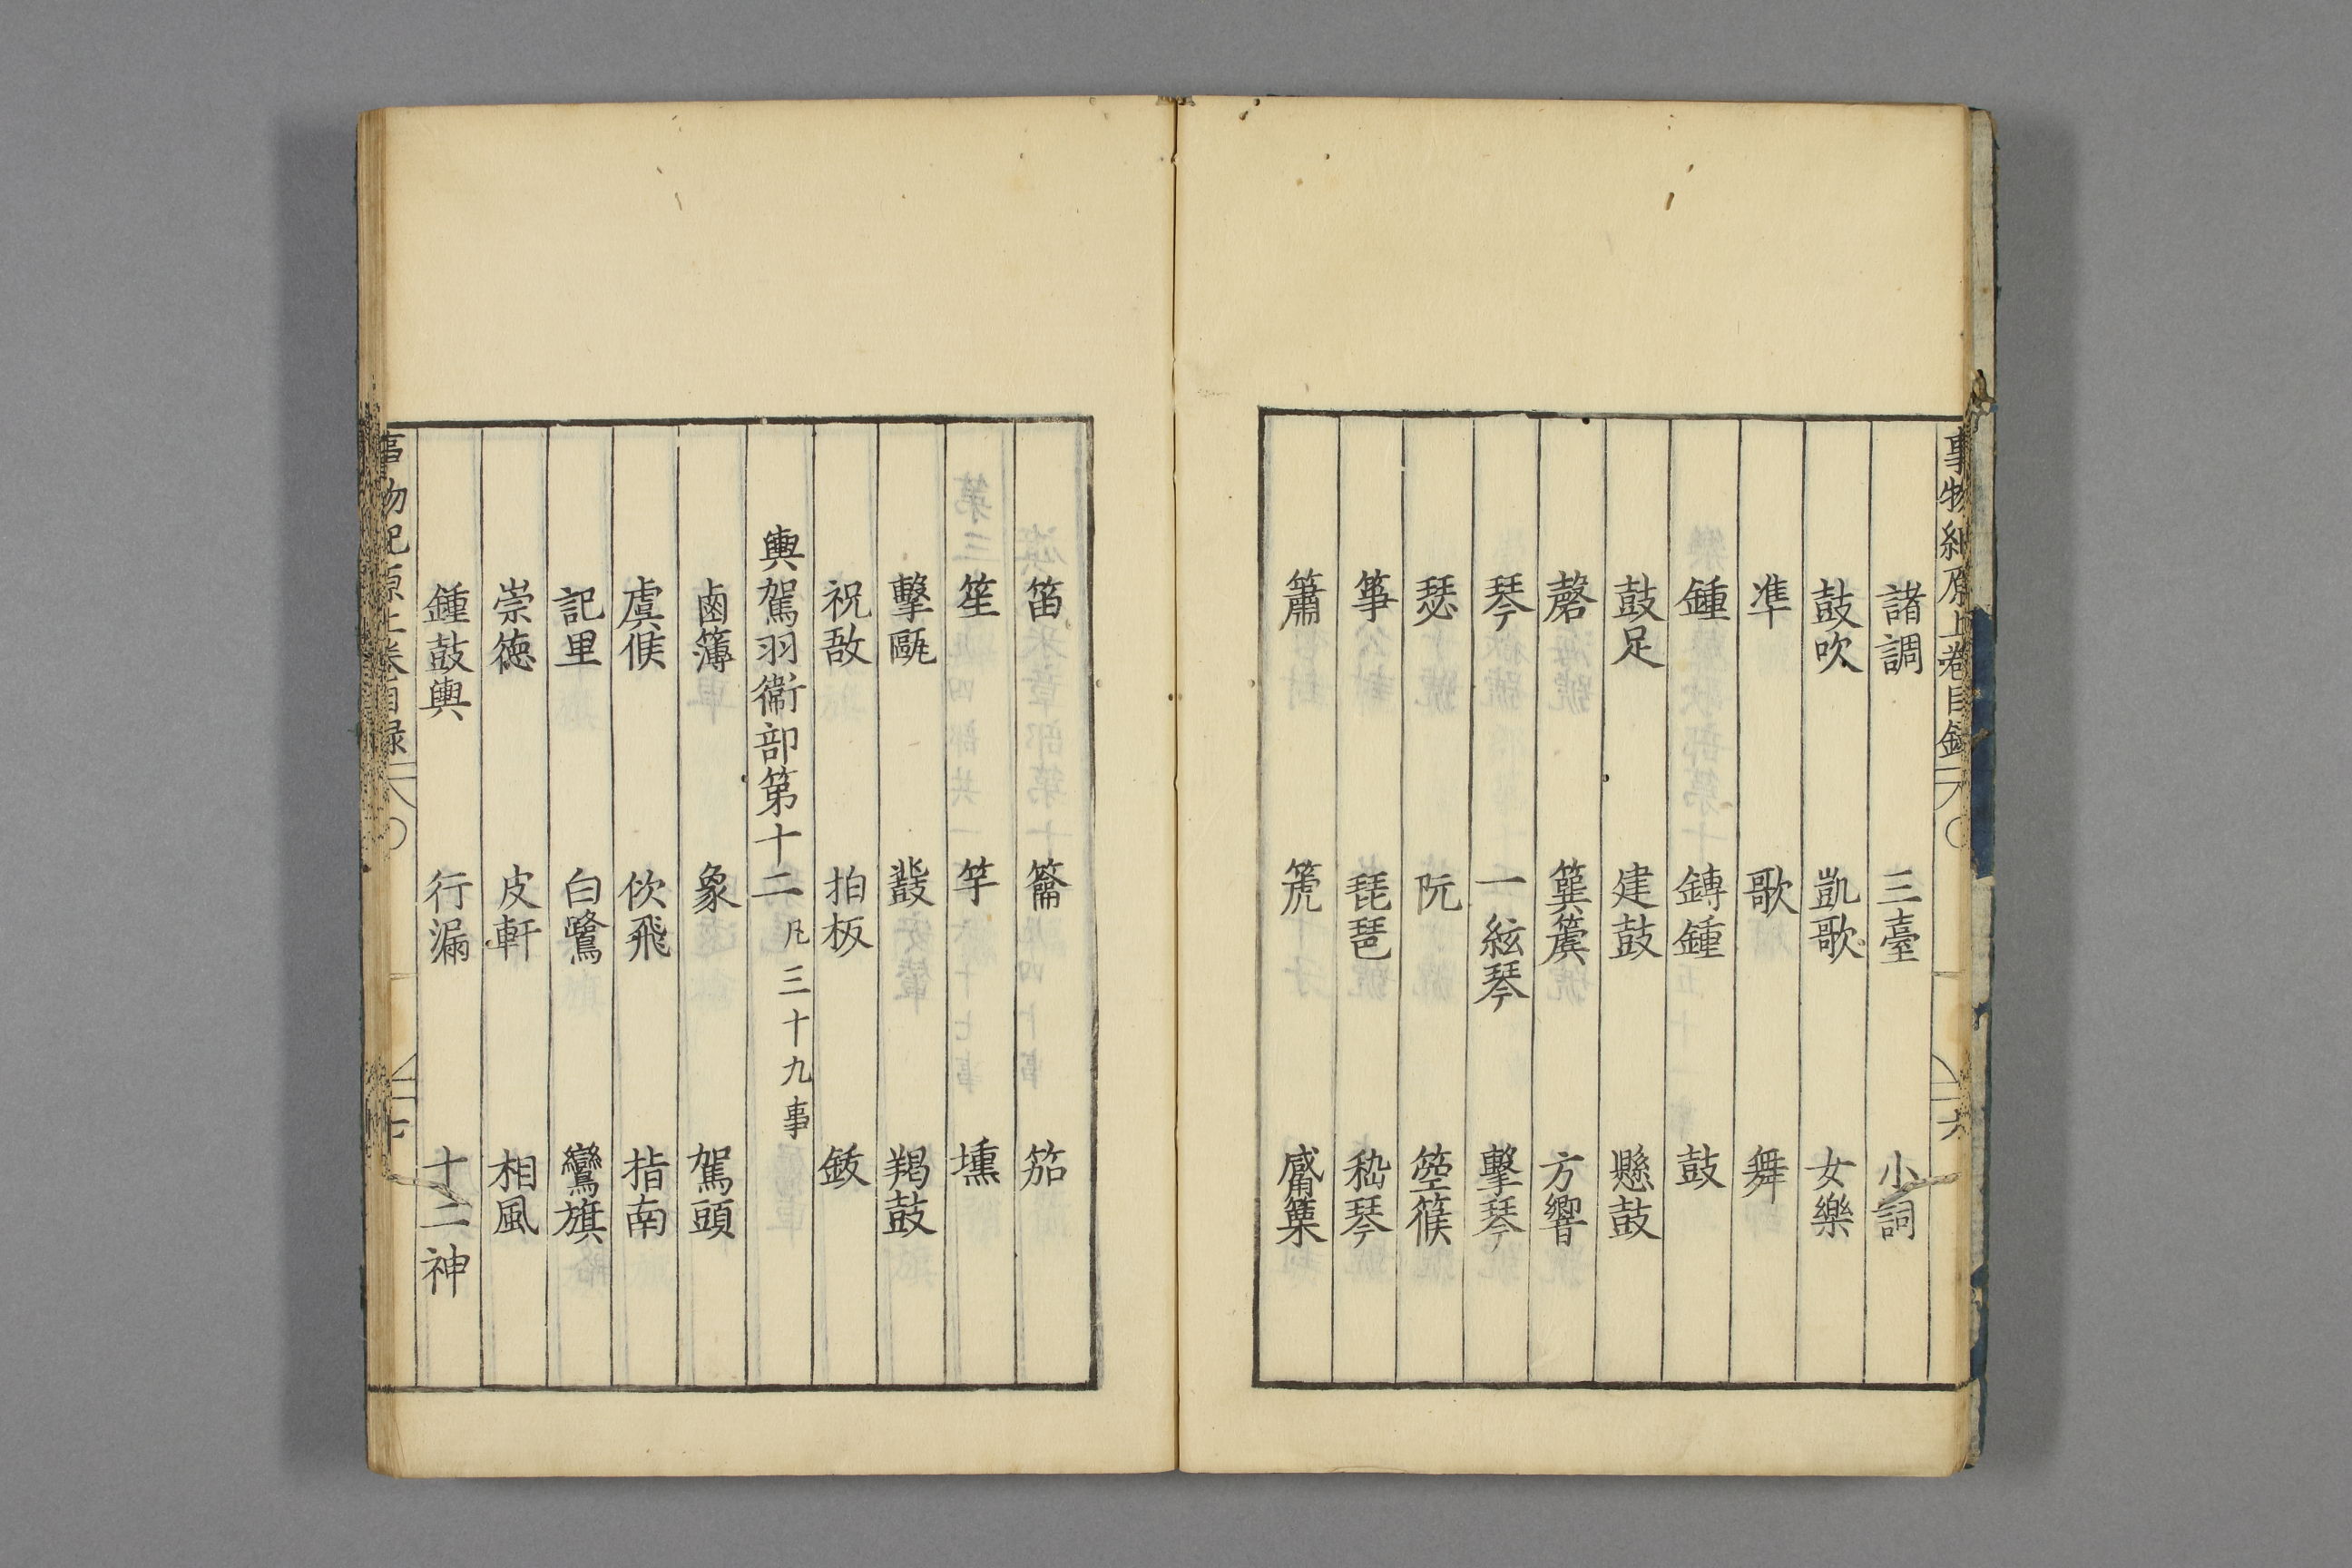 諸調 三臺 小詞
鼓吹 凱歌 女樂
準 歌 舞
鍾 鏄鍾 鼓
鼓足 建鼓 懸鼓
磬 簨簴 方響
琴 一絃琴 擊琴
瑟 阮 箜篌
箏 琵琶 嵇琴
簫 篪 觱篥
笛 籥 笳
笙 竽 壎
擊甌 鼗 羯鼓
柷敔 拍板 鈸
輿駕羽衞部第十二 凡三十九事
鹵簿 象 駕頭
虞候 佽飛 指南
記里 白鷺 鸞旗
崇德 皮軒 相風
鍾鼓輿 行漏 十二神
事物紀原上卷目録 七